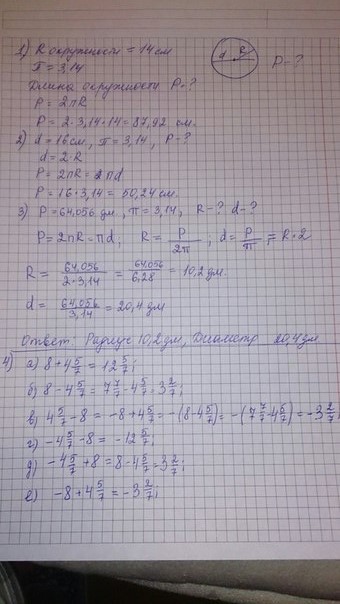 1) R окружности = 14 см
π = 3,14
d R
P = ?
Длина окружности P - ?
P = 2πR
P = 2·3,14·14 = 87,92 см.
2) d = 16 см, π = 3,14, P - ?
d = 2·R
P = 2πR = πd
P = 16·3,14 = 50,24 см.
3) P = 64,056 дм, π = 3,14, R - ? d - ?
P = 2πR = πd, R = P/2π ; d = P/π = R·2
R = 64,056/2·3,14 = 64,056/6,28 = 10,2 дм.
d = 64,056/3,14 = 20,4 дм
Ответ: Радиус 10,2 дм, Диаметр 20,4 дм.
4) а) 8 + 4 5/7 = 12 5/7;
б) 8 - 4 5/7 = 7 7/7 - 4 5/7 = 3 2/7;
в) 4 5/7 - 8 = -8 + 4 5/7 = -(8 - 4 5/7) = -(7 7/7 - 4 5/7) = -3 2/7
г) -4 5/7 - 8 = -12 5/7;
д) -4 5/7 + 8 = 8 - 4 5/7 = 3 2/7;
е) -8 + 4 5/7 = -3 2/7;